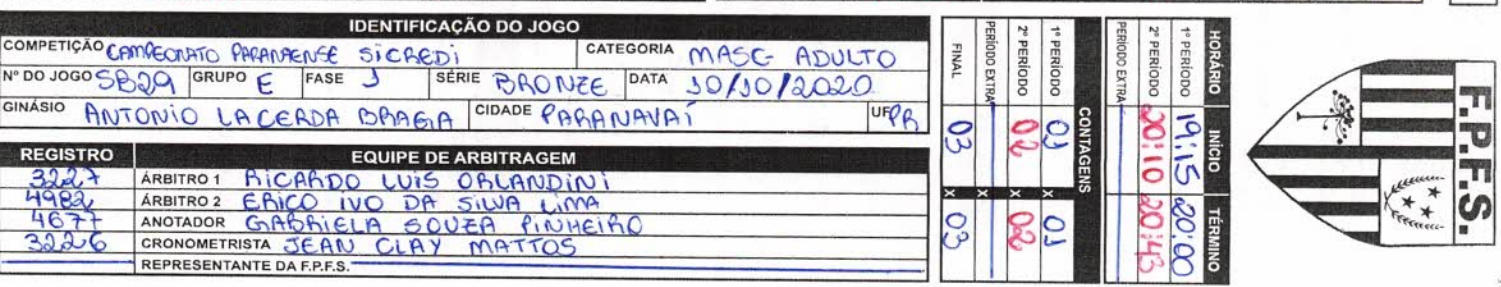 IDENTIFICAÇÃO DO JOGO
COMPETIÇÃO CAMPEONATO PARANAENSE SICREDI CATEGORIA MASC ADULTO
Nº DO JOGO SB29 GRUPO E FASE 1 SÉRIE BRONZE DATA 10/10/2020
GINÁSIO ANTONIO LACERDA BRAGA CIDADE PARANAVAÍ UF PR
REGISTRO EQUIPE DE ARBITRAGEM
3227 ÁRBITRO 1 RICARDO LUIS ORLANDINI
4982 ÁRBITRO 2 ERICO IVO DA SILVA LIMA
4677 ANOTADOR GABRIELA SOUZA PINHEIRO
3226 CRONOMETRISTA JEAN CLAY MATTOS
REPRESENTANTE DA F.P.F.S.
HORÁRIO INÍCIO TÉRMINO
1º PERÍODO 19:15 20:00
2º PERÍODO 20:10 20:43
PERÍODO EXTRA
CONTAGENS
1º PERÍODO 01 X 01
2º PERÍODO 02 X 02
PERÍODO EXTRA X
FINAL 03 X 03
F.P.F.S.